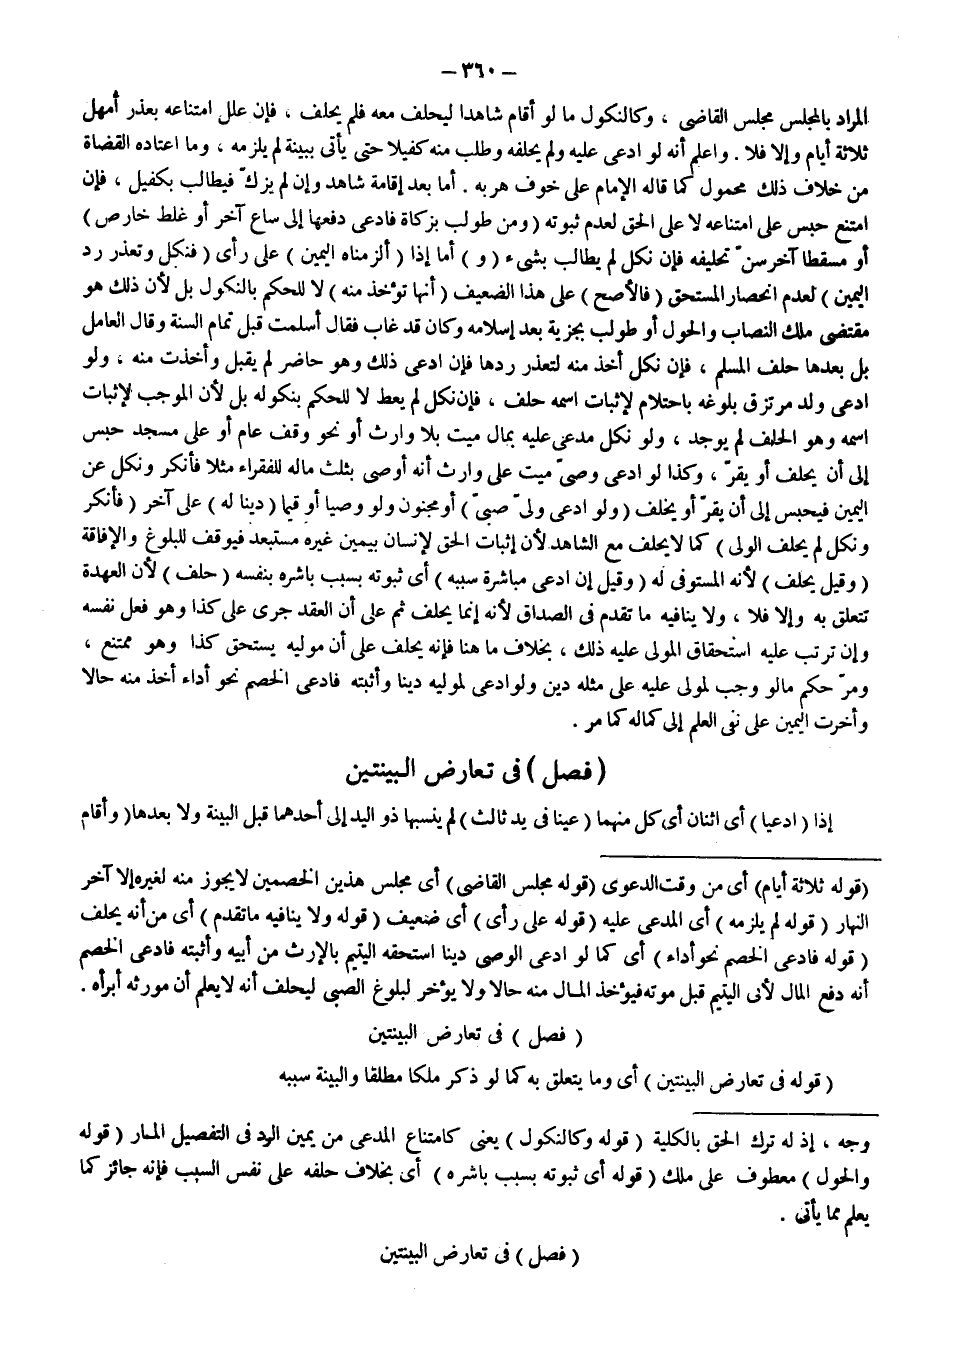 – ٣٦٠ –
المراد بالمجلس مجلس القاضى ، وكالنكول ما لو أقام شاهدا ليحلف معه فلم يحلف ، فإن علل امتناعه بعذر أمهل
ثلاثة أيام وإلا فلا . واعلم أنه لو ادعى عليه ولم يحلفه وطلب منه كفيلا حتى يأتى ببينة لم يلزمه ، وما اعتاده القضاة
من خلاف ذلك محمول كما قاله الإمام على خوف هربه . أما بعد إقامة شاهد وإن لم يزكّ فيطالب بكفيل ، فإن
امتنع حبس على امتناعه لا على الحق لعدم ثبوته ( ومن طولب بزكاة فادعى دفعها إلى ساع آخر أو غلط خارص )
أو مسقطا آخر سنّ تحليفه فإن نكل لم يطالب بشىء ( و ) أما إذا ( ألزمناه اليمين ) على رأى ( فنكل وتعذر رد
اليمين ) لعدم انحصار المستحق ( فالأصح ) على هذا الضعيف ( أنها تؤخذ منه ) لا للحكم بالنكول بل لأن ذلك هو
مقتضى ملك النصاب والحول أو طولب بجزية بعد إسلامه وكان قد غاب فقال أسلمت قبل تمام السنة وقال العامل
بل بعدها حلف المسلم ، فإن نكل أخذ منه لتعذر ردها فإن ادعى ذلك وهو حاضر لم يقبل وأخذت منه ، ولو
ادعى ولد مرتزق بلوغه باحتلام لإثبات اسمه حلف ، فإن نكل لم يعط لا للحكم بنكوله بل لأن الموجب لإثبات
اسمه وهو الحلف لم يوجد ، ولو نكل مدعى عليه بمال ميت بلا وارث أو نحو وقف عام أو على مسجد حبس
إلى أن يحلف أو يقرّ ، وكذا لو ادعى وصىّ ميت على وارث أنه أوصى بثلث ماله للفقراء مثلا فأنكر ونكل عن
اليمين فيحبس إلى أن يقرّ أو يخلف ( ولو ادعى ولىّ صبىّ ) أو مجنون ولو وصيا أو قيما ( دينا له ) على آخر ( فأنكر
ونكل لم يحلف الولى ) كما لا يحلف مع الشاهد لأن إثبات الحق لإنسان بيمين غيره مستبعد فيوقف للبلوغ والإفاقة
( وقيل يحلف ) لأنه المستوفى له ( وقيل إن ادعى مباشرة سببه ) أى ثبوته بسبب باشره بنفسه ( حلف ) لأن العهدة
تتعلق به وإلا فلا ، ولا ينافيه ما تقدم فى الصداق لأنه إنما يحلف ثم على أن العقد جرى على كذا وهو فعل نفسه
وإن ترتب عليه استحقاق المولى عليه ذلك ، بخلاف ما هنا فإنه يحلف على أن موليه يستحق كذا وهو ممتنع ،
ومرّ حكم ما لو وجب لمولى عليه على مثله دين ولو ادعى لموليه دينا وأثبته فادعى الخصم نحو أداء أخذ منه حالا
وأخرت اليمين على نفى العلم إلى كماله كما مر .
( فصل ) فى تعارض البينتين
إذا ( ادعيا ) أى اثنان أى كل منهما ( عينا فى يد ثالث ) لم ينسبها ذو اليد إلى أحدهما قبل البينة ولا بعدها ( وأقام
(قوله ثلاثة أيام) أى من وقت الدعوى (قوله مجلس القاضى) أى مجلس هذين الخصمين لا يجوز منه لغيره إلا آخر
النهار ( قوله لم يلزمه ) أى المدعى عليه ( قوله على رأى ) أى ضعيف ( قوله ولا ينافيه ما تقدم ) أى من أنه يحلف
( قوله فادعى الخصم نحو أداء ) أى كما لو ادعى الوصى دينا استحقه اليتيم بالإرث من أبيه وأثبته فادعى الخصم
أنه دفع المال لأبى اليتيم قبل موته فيؤخذ المال منه حالا ولا يؤخر لبلوغ الصبى ليحلف أنه لا يعلم أن مورثه أبرأه .
( فصل ) فى تعارض البينتين
( قوله فى تعارض البينتين ) أى وما يتعلق به كما لو ذكر ملكا مطلقا والبينة سببه
وجه ، إذ له ترك الحق بالكلية ( قوله وكالنكول ) يعنى كامتناع المدعى من يمين الرد فى التفصيل المار ( قوله
والحول ) معطوف على ملك ( قوله أى ثبوته بسبب باشره ) أى بخلاف حلفه على نفس السبب فإنه جائز كما
يعلم مما يأتى .
( فصل ) فى تعارض البينتين